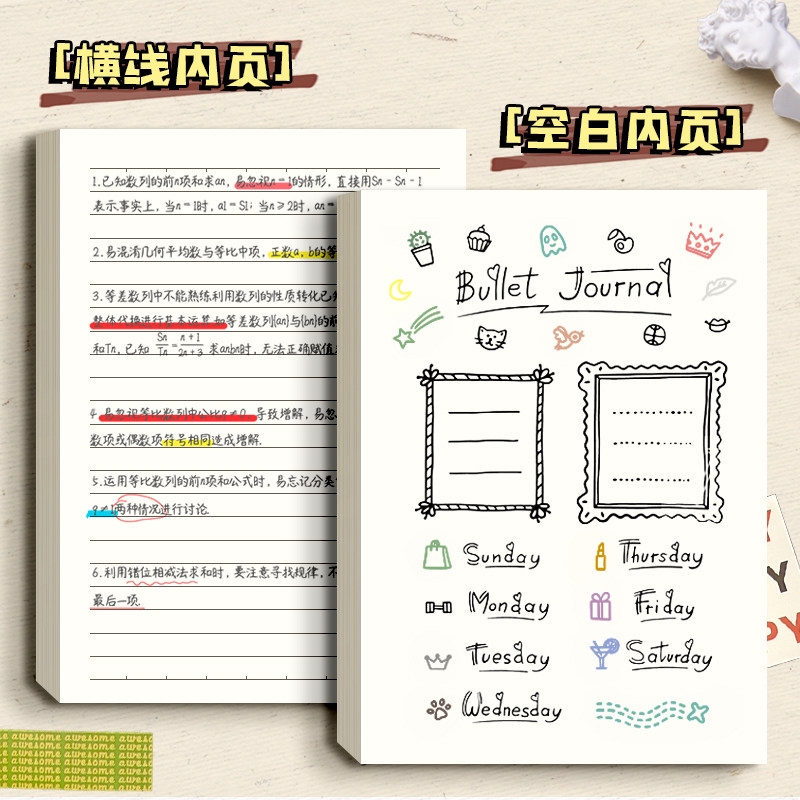 [横线内页]
[空白内页]
1.已知数列的前n项和求an, 易忽视n=1的情形, 直接用Sn-Sn-1
表示事实上, 当n=1时, a1=S1; 当n≥2时, an=
2.易混淆几何平均数与等比中项, 正数a, b的等
3.等差数列中不能熟练利用数列的性质转化已知
整体代换进行基本运算.如等差数列{an}与{bn}的前
和Tn, 已知 Sn/Tn=n+1/2n+3 求anbn时, 无法正确赋值
4 易忽视等比数列中公比q≠0, 导致增解, 易忽
数项或偶数项符号相同造成增解.
5.运用等比数列的前n项和公式时, 易忘记分类
q≠1两种情况进行讨论
6.利用错位相减法求和时, 要注意寻找规律, 不
最后一项.
Bullet Journal
Sunday
Thursday
Monday
Friday
Tuesday
Saturday
Wednesday
Y
Y
PY
awesome awesome awesome
awesome awesome awesome
awesome awesome awesome
awesome awesome awesome